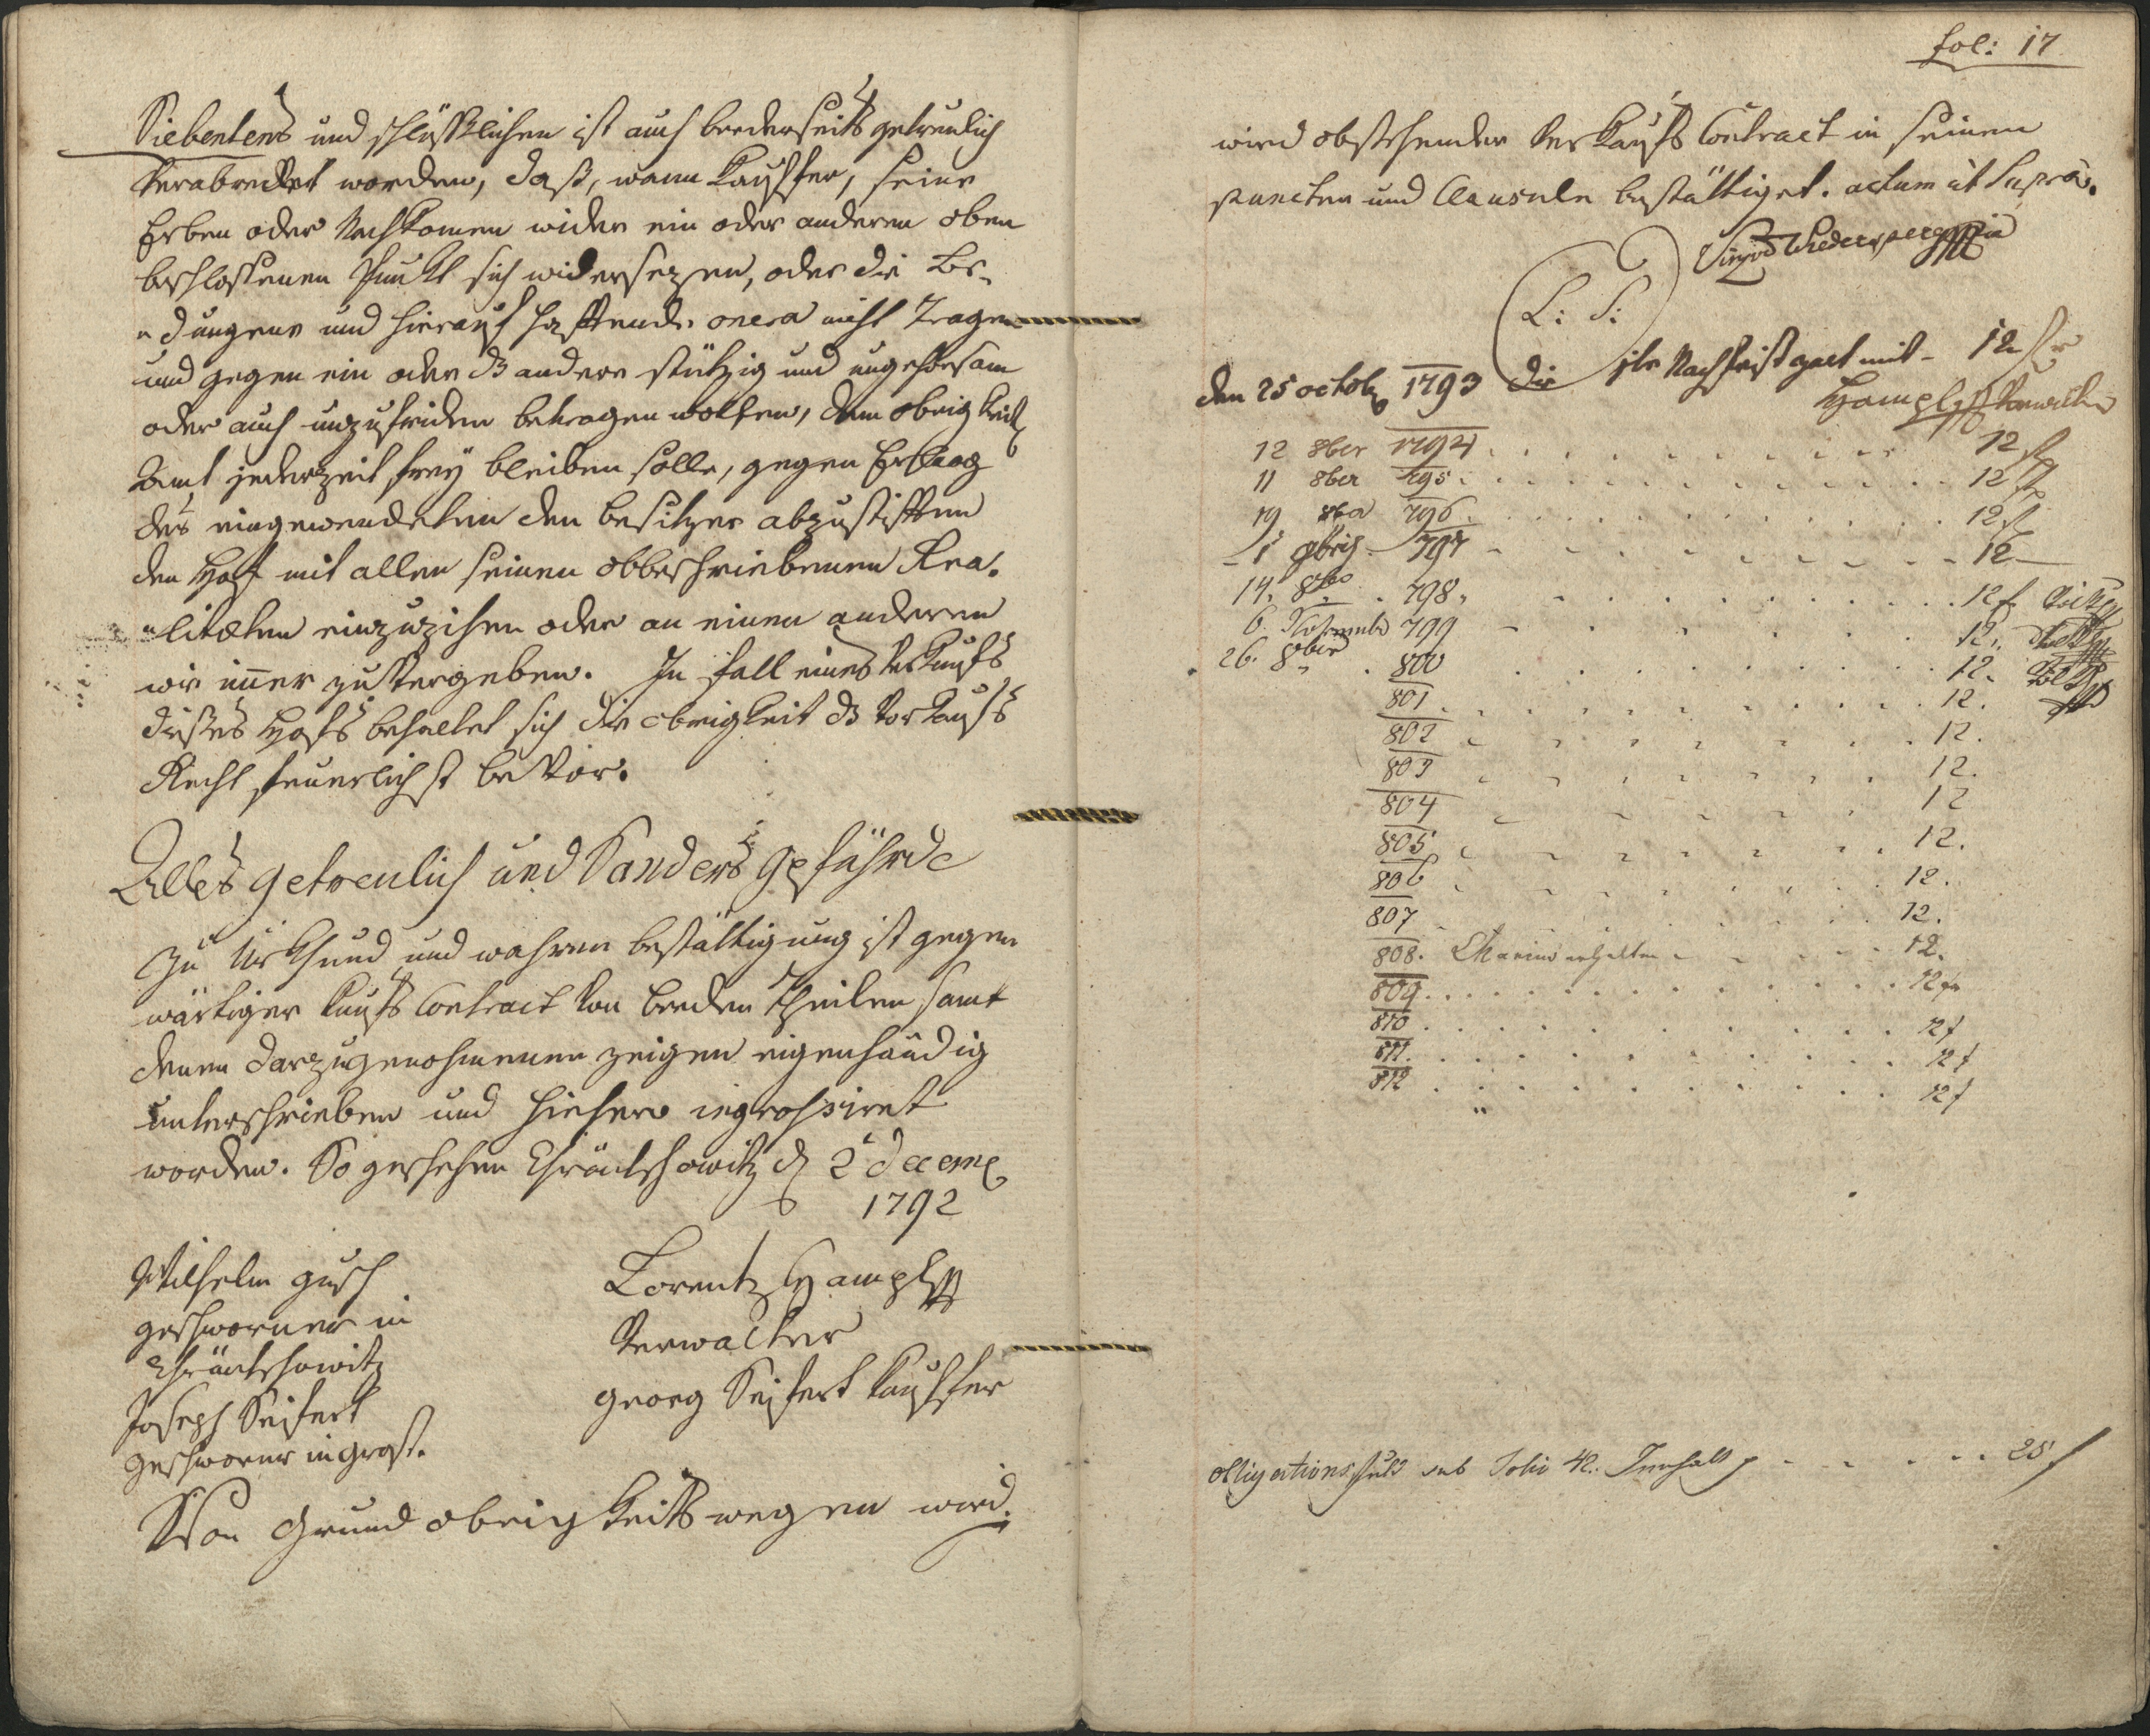 Siebentens und schlüßlichen ist auch beederseits getreulich
verabredet worden, daß, wann Kauffer, seine
Erben oder Nachkomen wider ein oder anderen oben
beschlossenen Punkt sich widersezen, oder die Be-
"dungene und hierauf haftende onera nicht Tragen
und gegen ein oder das andere stützig und ungehorsam
oder auch unzufriden betragen wolten, dem obrigkeitl
Amt jederzeit freÿ bleiben solle, gegen Erlaag
des eingewendeten den besitzer abzustiften
den Hof mit allen seinen obbeschriebenen Rea-
"litæten einzuzihen oder an einen anderen
wie imer zu vergeben. In fall eines Verkaufs
dießes Hofs behaltet sich die obrigkeit das Vorkaufs
Recht feuerlichst bevor.
Alles getreulich und Sonders gefährde
Zu Urkhund und wahren bestättigung ist gegen
wärtiger Kaufs Contract von beeden Theilen samt
denen darzugenohmenen zeigen eigenhändig
unterschrieben und hiehero ingrossiret
worden. So geschehen d 2 decemb
1792
Wilhelm
geschworner in
Joseph Seifert
geschworner in
Lorentz Hampl
Verwalter
georg Seifert Kauffer
Von Grund obrigkeits wegen wird
fol: 17
wird obstehender Verkaufs Contract in seinen
puncten und Clausuln bestättiget. actum ut Supra.
L: S:
den 25 octob 1793 die 1te Nachfrist zalt mit - 12 f
Hampl Verwalter
12 8ber 1794 . . . 12 f
11 8ber 795 . . . 12 f
19 8ber 796 . . . 12 f
1 797 - - - 12 -
14. 8br . 798. . . . 12 f
6. Novembr 799 - . . . 12.
26. 8ber . 800 . . . 12.
801 . . . 12.
802 . . . 12.
803 . . . 12.
804 . . . 12
805 . . . 12.
806 . . . 12.
807 . . . 12.
808. erhalten - - - 12.
809 . . . 12 f
810 . . . 12 f
811 . . . 12 f
812 . . . 12 f
obligations sub Folio 42. Innhalt - - - 25 f